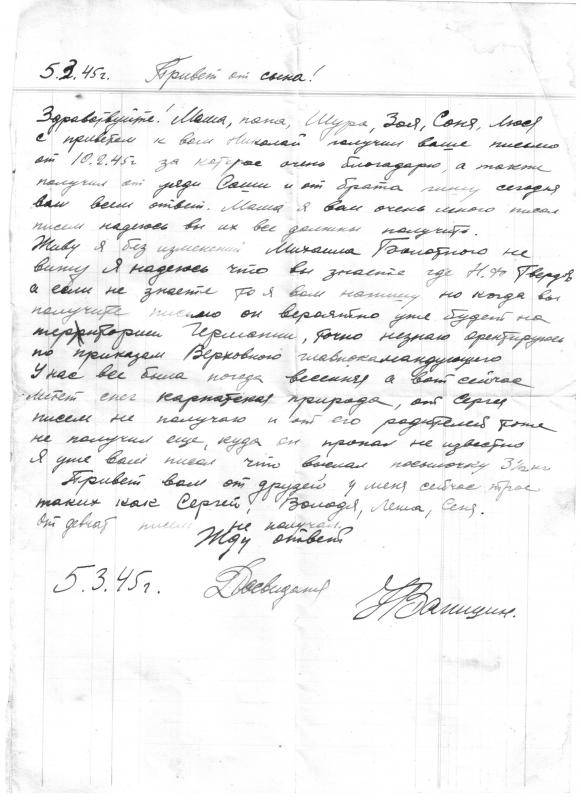 5.3.45г. Привет от сына!
Здравствуйте! Мама, папа, Шура, Зоя, Соня, Люся
с приветом к вам Николай получил ваше письмо
от 10.2.45г за которое очень благодарю, а также
получил от дяди Саши и от брата пишу сегодня
вам всем ответ. Мама я вам очень много писал
писем надеюсь вы их все должны получить.
Живу я без изменений Михаила Болотного не
вижу Я надеюсь что вы знаете где
а если не знаете то я вам напишу но когда вы
получите письмо он вероятно уже будет на
территории Германии, точно незнаю орентируюсь
по приказам Верховного главнокамандующего
У нас все была погода весенняя а вот сейчас
метет снег карпатская природа, от Сергея
писем не получаю и от его родителей тоже
не получил еще, куда он пропал не известно
Я уже вам писал что выслал посылочку 3½кг
Привет вам от друзей у меня сейчас трое
таких как Сергей, Володя, Леша, Сеня.
От девчат писем не получаю
Жду ответ
5.3.45г. Досвидания